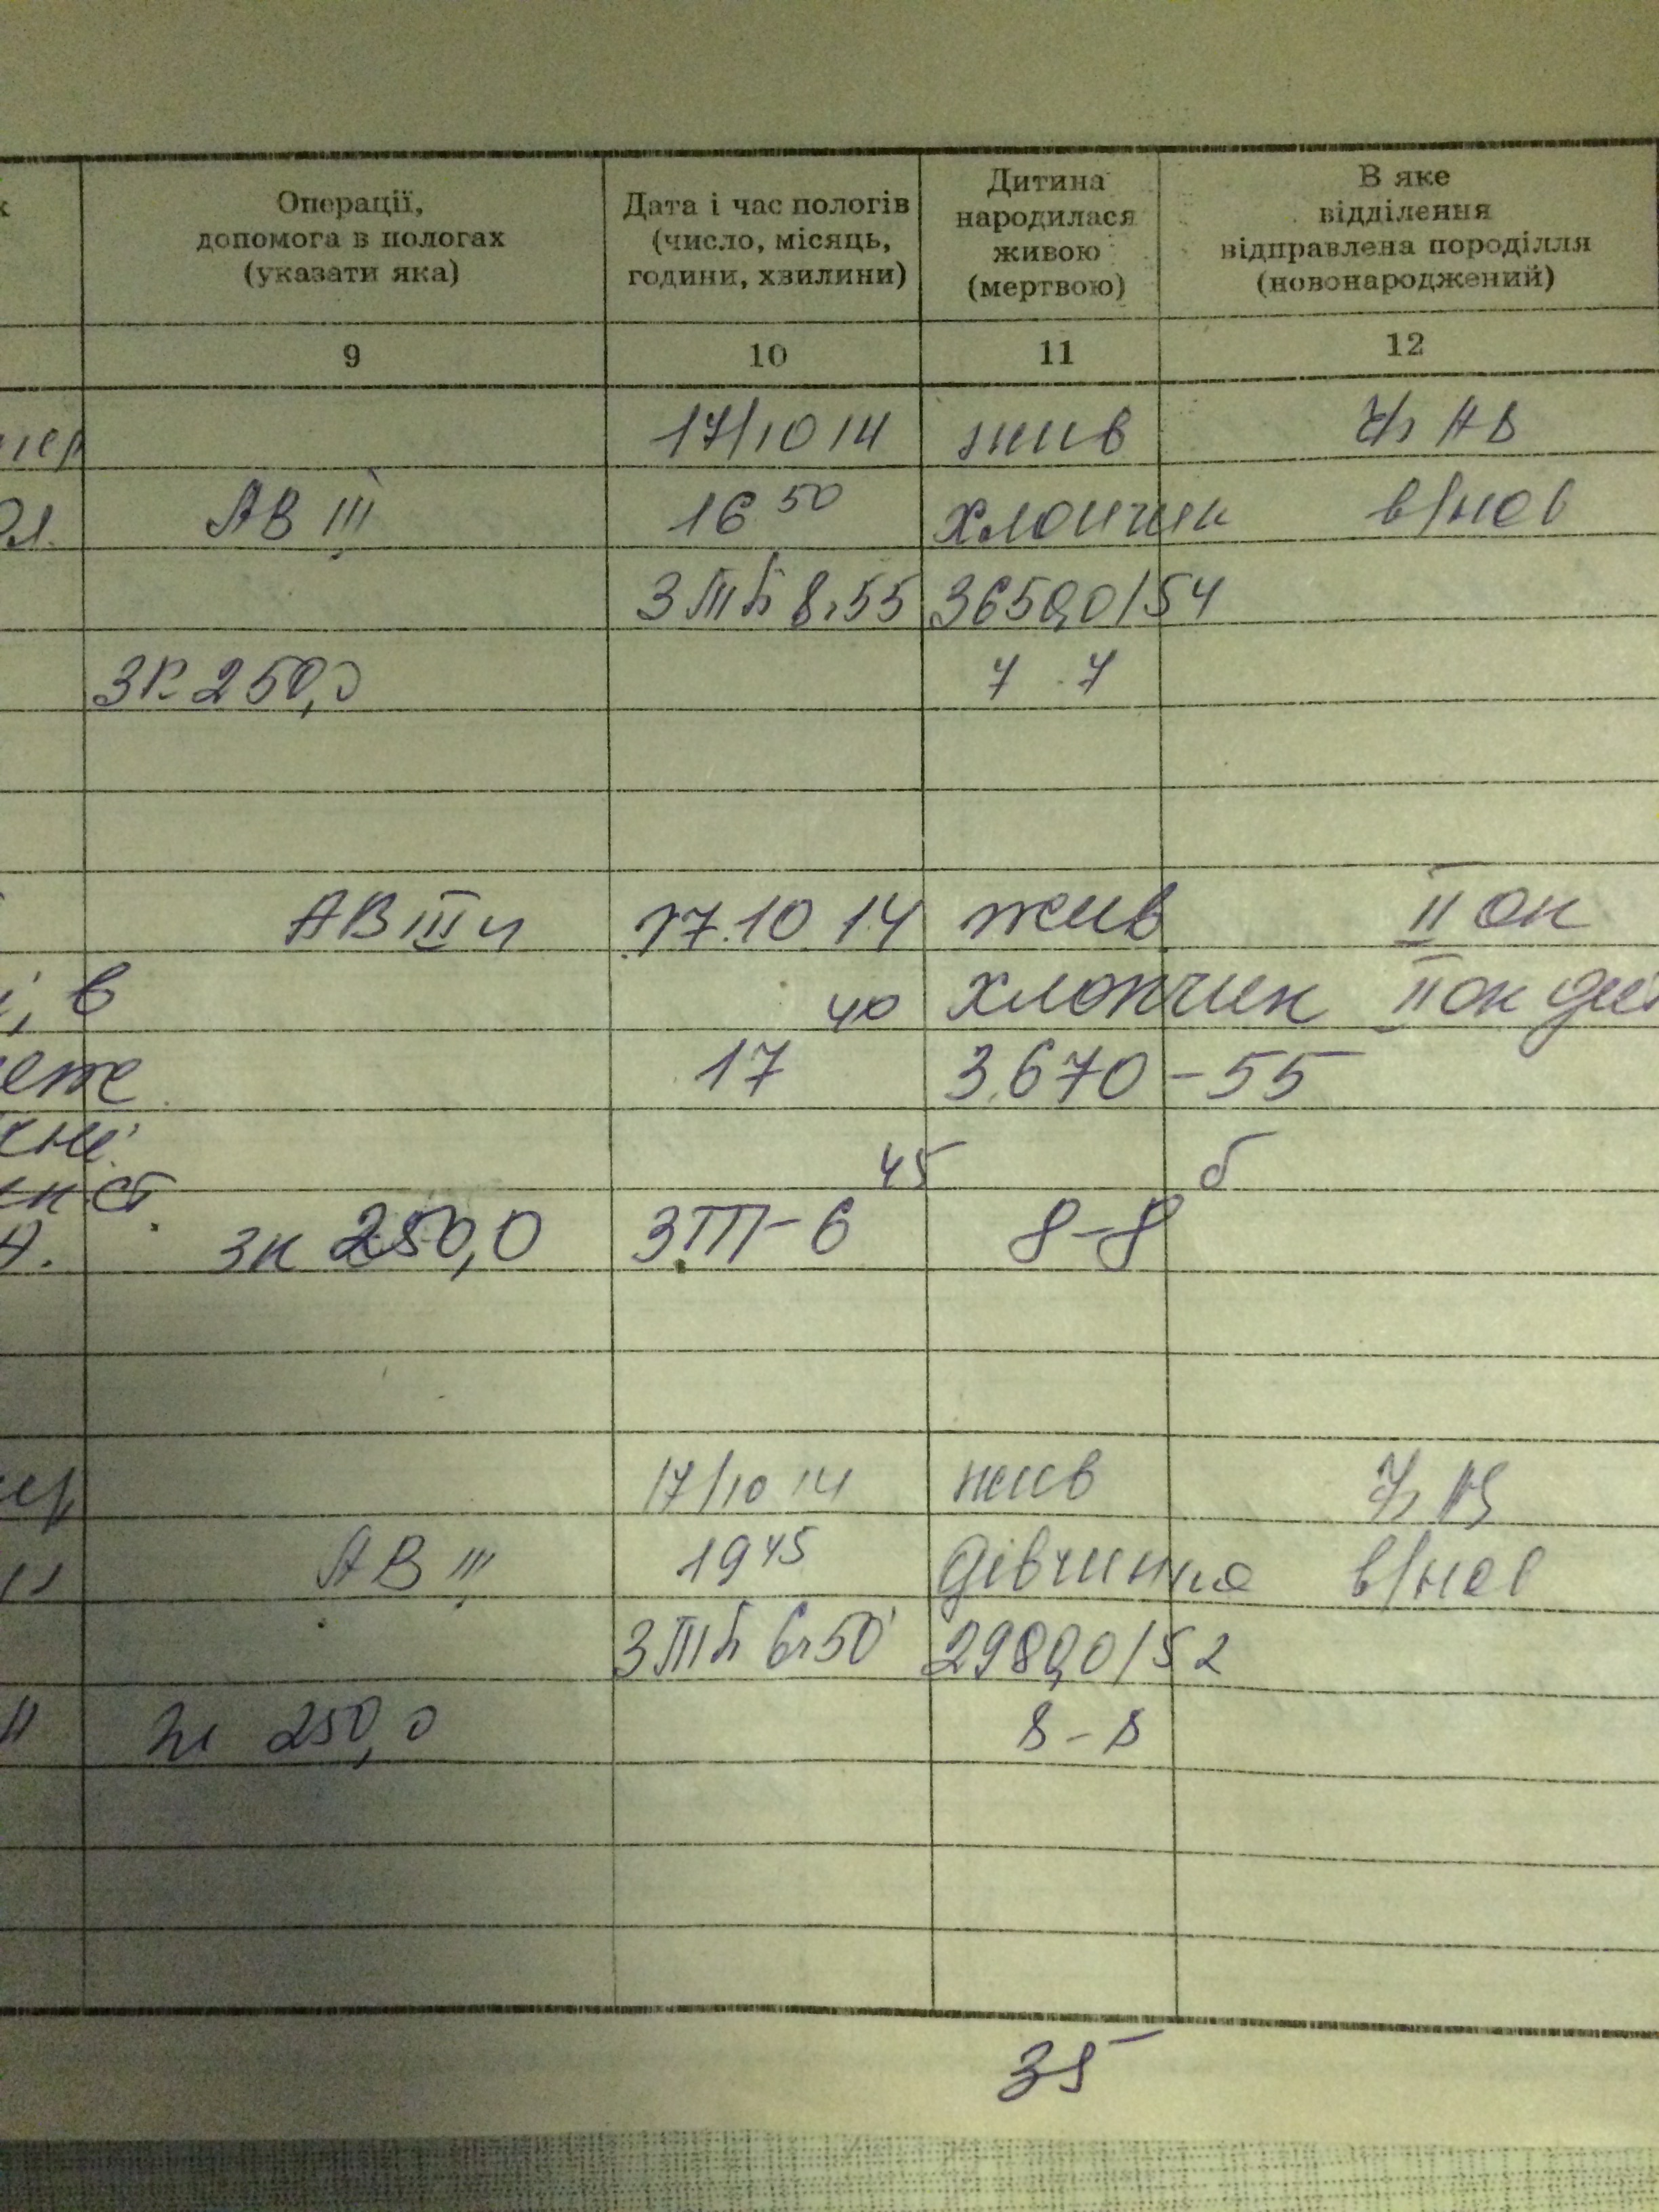 Операції,
допомога в пологах
(указати яка)
Дата і час пологів
(число, місяць,
години, хвилини)
Дитина
народилася
живою
(мертвою)
В яке
відділення
відправлена породілля
(новонароджений)
9 10 11 12
17/10 14 жив
АВ III 16 50 хлопчик в/нов
3650,0/54
ЗК 250,0 7 7
АВ III 17.10 14 жив II ок
і, в 40 хлопчик II ок
17 3.670 - 55
45 б
зк 250,0 6 8-8
17/10 14 жив
АВ III 19 45 дівчинка в/нов
2980,0/52
250,0 8-8
35